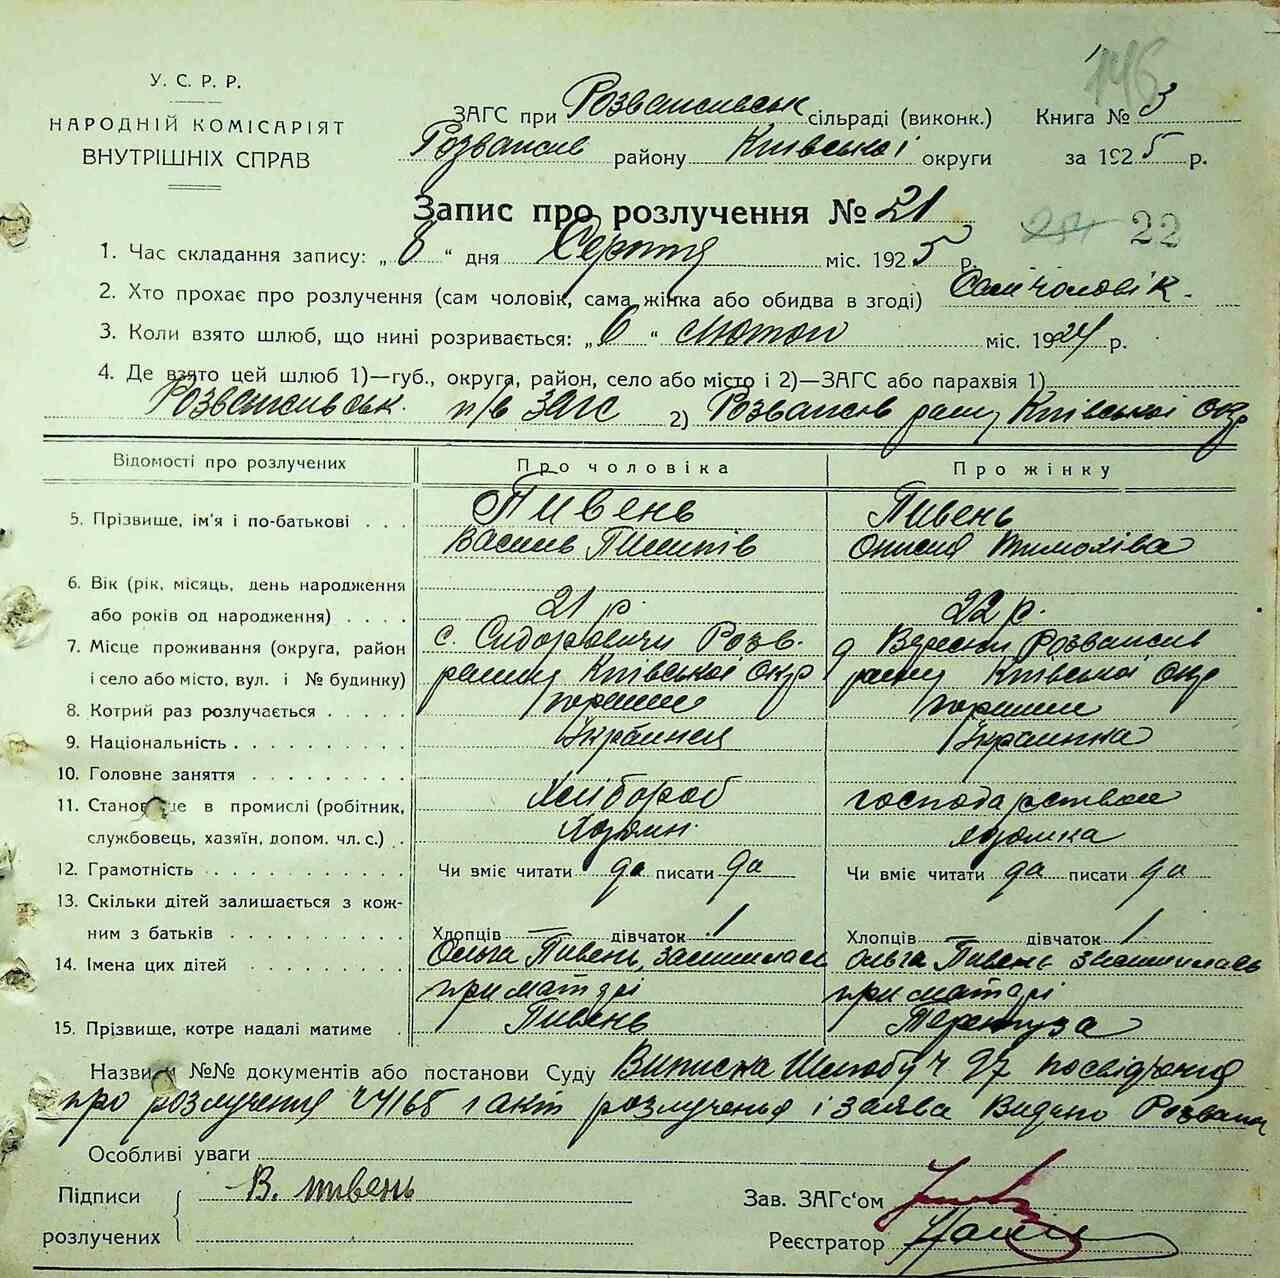 146
У. С. Р. Р.
НАРОДНІЙ КОМІСАРІЯТ
ВНУТРІШНІХ СПРАВ
ЗАГС при Розважівськ сільраді (виконк.) Книга № 3
Розважів району Київської округи за 1925 р.
Запис про розлучення № 21
22
1. Час складання запису: „ 8 “ дня Серпня міс. 1925 р.
2. Хто прохає про розлучення (сам чоловік, сама жінка або обидва в згоді) Сам чоловік.
3. Коли взято шлюб, що нині розривається: „ 6 “ лютого міс. 1924 р.
4. Де взято цей шлюб 1)—губ., округа, район, село або місто і 2)—ЗАГС або парахвія 1)
Розважівськ. п/в ЗАГС 2) Розважів рану Київської окр
Відомості про розлучених Про чоловіка Про жінку
5. Прізвище, ім'я і по-батькові . . . Пивень Пивень
Василь Пилипів Онися Тимохіва
6. Вік (рік, місяць, день народження
або років од народження) . . . . 21 р. 22 р.
7. Місце проживання (округа, район с. Сидоровичи Розв. Розважів
і село або місто, вул. і № будинку) Київської окр Київської окр
8. Котрий раз розлучається . . . . .
9. Національність . . . . . . . . . . Українка
10. Головне заняття . . . . . . . . .
11. Становище в промислі (робітник, Хлібороб господарством
службовець, хазяїн, допом. чл. с.) . Хозяин. хозяйка
12. Грамотність . . . . . . . . . . . Чи вміє читати да писати да Чи вміє читати да писати да
13. Скільки дітей залишається з кож-
ним з батьків . . . . . . . . . . Хлопців — дівчаток 1 Хлопців — дівчаток 1
14. Імена цих дітей . . . . . . . . . Ольга Пивень, залишилась Ольга Пивень залишилась
при матері при матері
15. Прізвище, котре надалі матиме . Пивень
Назви й №№ документів або постанови Суду Виписка Шлюбу ч 27
про розлучення і акт розлученья і заява Видано
Особливі уваги
Підписи В. пивень Зав. ЗАГс'ом
розлучених Реєстратор